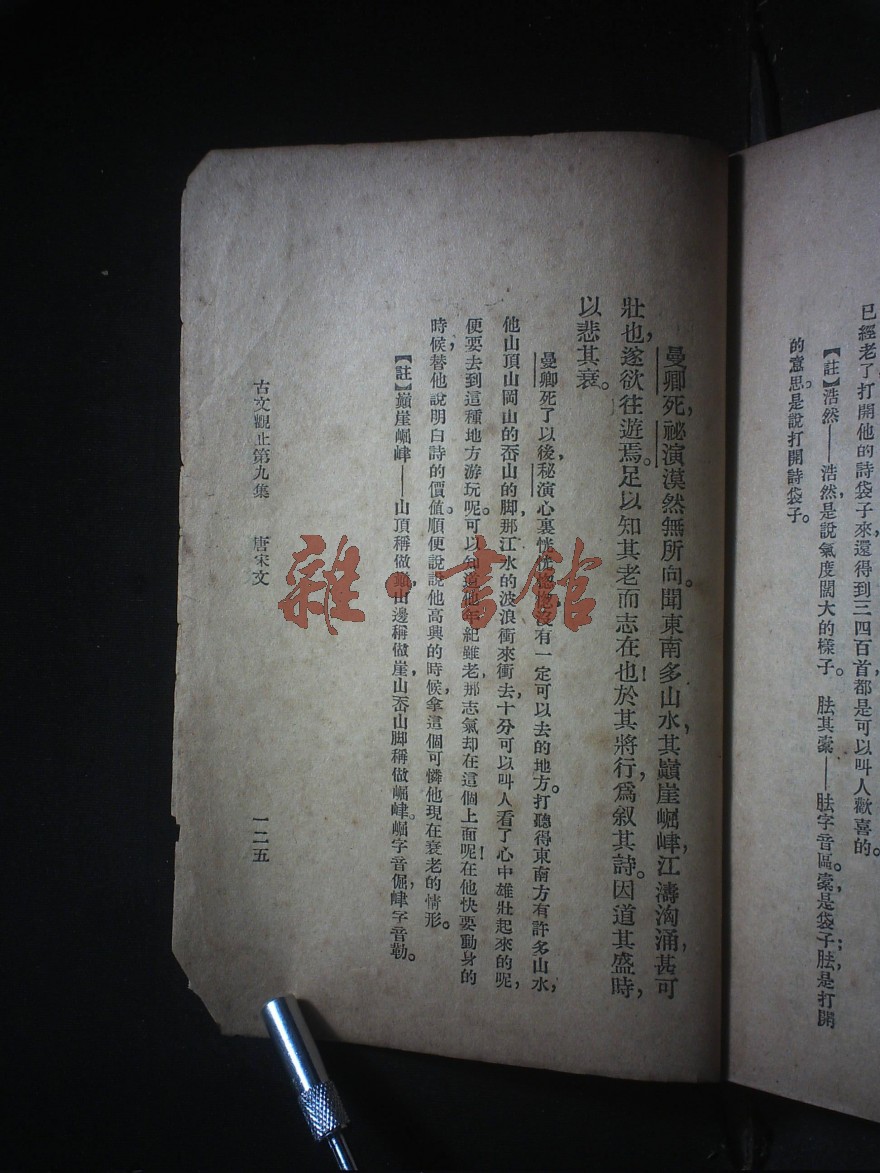 已經老了打開他的詩袋子來，還得到三四百首都是可以叫人歡喜的。
【註】浩然——浩然是說氣度闊大的樣子。 胠其橐——胠字音區。橐是袋子；胠是打開
的意思。是說打開詩袋子。
曼卿死，祕演漠然無所向。聞東南多山水，其巔崖崛峍，江濤洶涌，甚可
壯也，遂欲往遊焉。足以知其老而志在也！於其將行，爲叙其詩。因道其盛時，
以悲其衰。
曼卿死了以後，秘演心裏恍恍惚惚，沒有一定可以去的地方。打聽得東南方有許多山水，
他山頂山岡山的峹山的脚，那江水的波浪衝來衝去，十分可以叫人看了心中雄壯起來的呢，
便要去到這種地方游玩呢。可以知道他年紀雖老，那志氣却在這個上面呢！在他快要動身的
時候，替他說明白詩的價値。順便說說他高興的時候，拿這個可憐他現在衰老的情形。
【註】巔崖崛峍——山頂稱做巔，山邊稱做崖，山峹山脚稱做崛峍。崛字音倔，峍字音勒。
古文觀止第九集 唐宋文 一二五
雜·書館